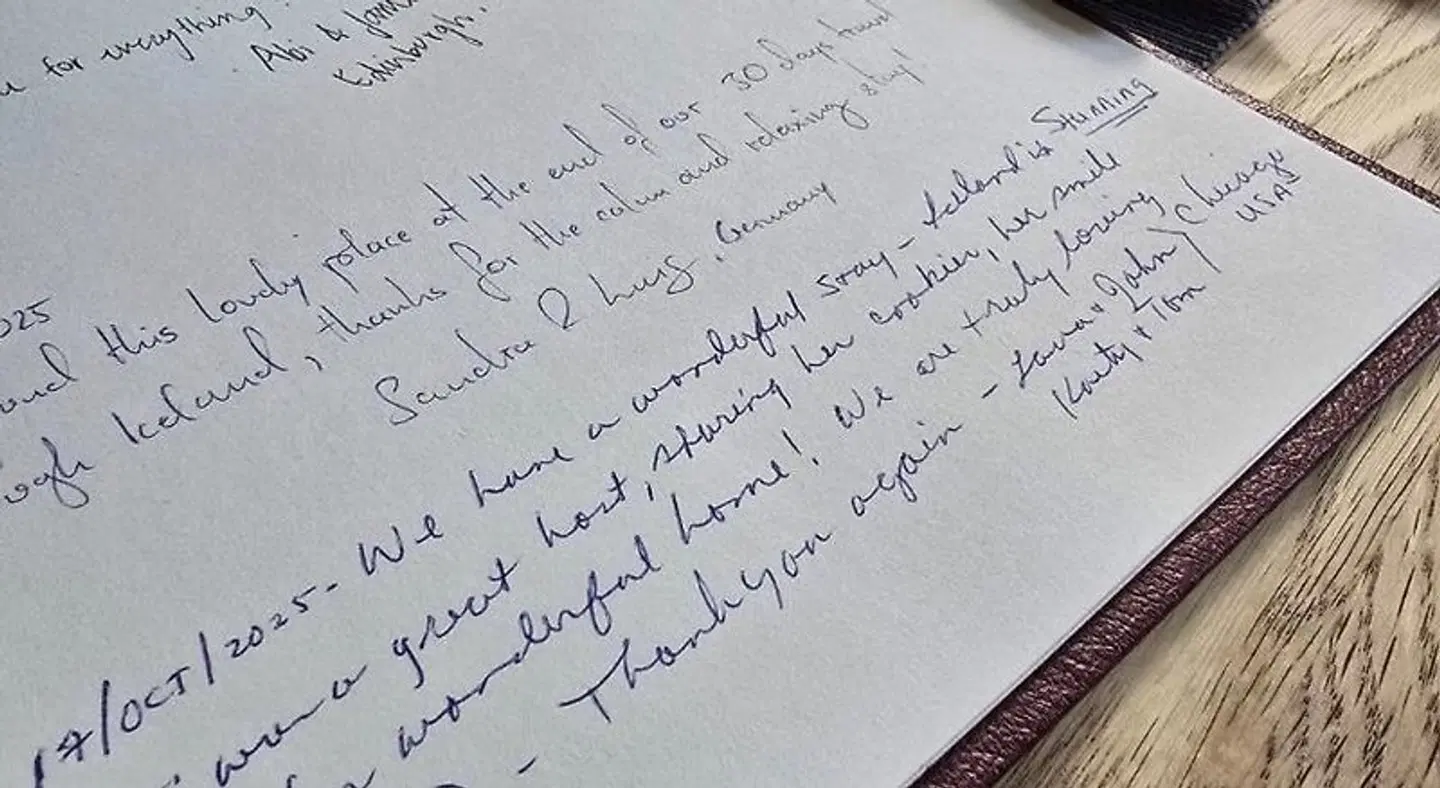 for everything!
Abi &
Edinburgh.
025
this lovely place at the end of our 30 day travel
Iceland, thanks for the calm and relaxing stay!
Sandra & Luis, Germany
17/OCT/2025 - We have a wonderful stay - Iceland is Stunning
a great host, sharing her cookies, her smile
wonderful home! We are truly loving
- Thank you again - Laura & John
Kathy & Tom
Chicago
USA